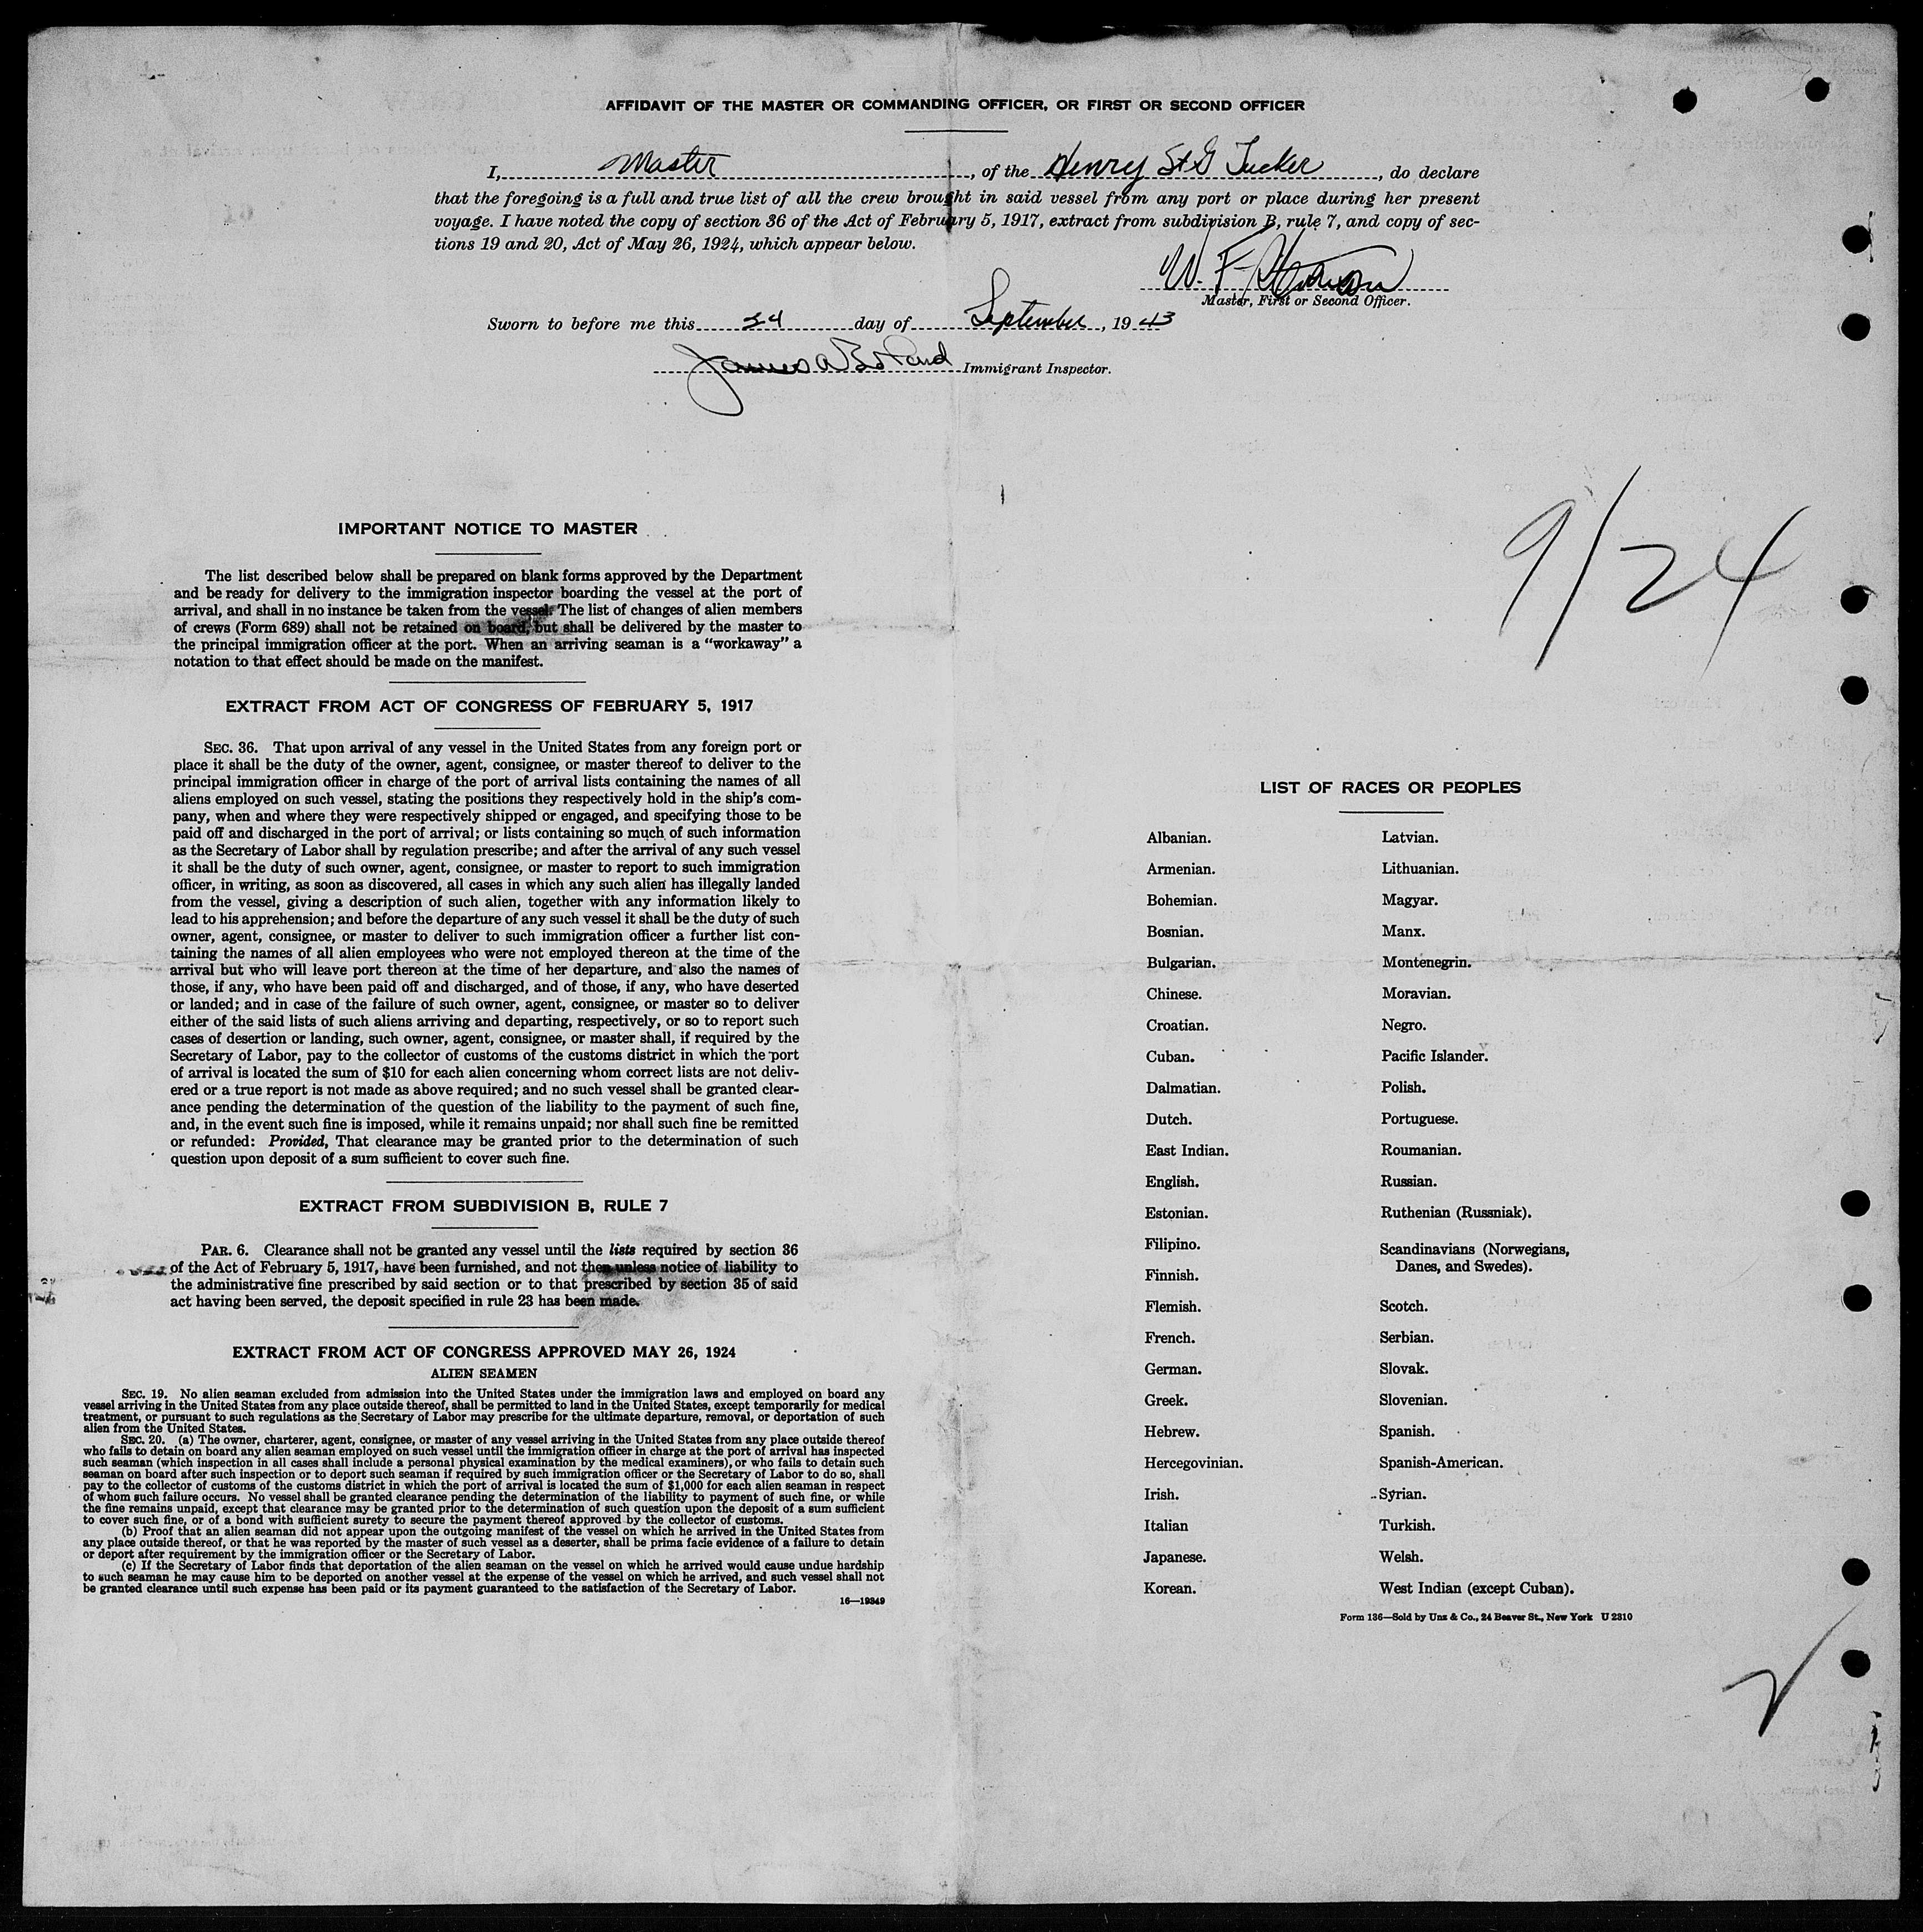 AFFIDAVIT OF THE MASTER OR COMMANDING OFFICER, OR FIRST OR SECOND OFFICER
I, Master, of the Henry St G Tucker, do declare
that the foregoing is a full and true list of all the crew brought in said vessel from any port or place during her present
voyage. I have noted the copy of section 36 of the Act of February 5, 1917, extract from subdivision B, rule 7, and copy of sec-
tions 19 and 20, Act of May 26, 1924, which appear below.
W. F.
Master, First or Second Officer.
Sworn to before me this 24 day of September, 1943
James Immigrant Inspector.
9/24
IMPORTANT NOTICE TO MASTER
The list described below shall be prepared on blank forms approved by the Department
and be ready for delivery to the immigration inspector boarding the vessel at the port of
arrival, and shall in no instance be taken from the vessel. The list of changes of alien members
of crews (Form 689) shall not be retained on board, but shall be delivered by the master to
the principal immigration officer at the port. When an arriving seaman is a "workaway" a
notation to that effect should be made on the manifest.
EXTRACT FROM ACT OF CONGRESS OF FEBRUARY 5, 1917
SEC. 36. That upon arrival of any vessel in the United States from any foreign port or
place it shall be the duty of the owner, agent, consignee, or master thereof to deliver to the
principal immigration officer in charge of the port of arrival lists containing the names of all
aliens employed on such vessel, stating the positions they respectively hold in the ship's com-
pany, when and where they were respectively shipped or engaged, and specifying those to be
paid off and discharged in the port of arrival; or lists containing so much of such information
as the Secretary of Labor shall by regulation prescribe; and after the arrival of any such vessel
it shall be the duty of such owner, agent, consignee, or master to report to such immigration
officer, in writing, as soon as discovered, all cases in which any such alien has illegally landed
from the vessel, giving a description of such alien, together with any information likely to
lead to his apprehension; and before the departure of any such vessel it shall be the duty of such
owner, agent, consignee, or master to deliver to such immigration officer a further list con-
taining the names of all alien employees who were not employed thereon at the time of the
arrival but who will leave port thereon at the time of her departure, and also the names of
those, if any, who have been paid off and discharged, and of those, if any, who have deserted
or landed; and in case of the failure of such owner, agent, consignee, or master so to deliver
either of the said lists of such aliens arriving and departing, respectively, or so to report such
cases of desertion or landing, such owner, agent, consignee, or master shall, if required by the
Secretary of Labor, pay to the collector of customs of the customs district in which the port
of arrival is located the sum of $10 for each alien concerning whom correct lists are not deliv-
ered or a true report is not made as above required; and no such vessel shall be granted clear-
ance pending the determination of the question of the liability to the payment of such fine,
and, in the event such fine is imposed, while it remains unpaid; nor shall such fine be remitted
or refunded: Provided, That clearance may be granted prior to the determination of such
question upon deposit of a sum sufficient to cover such fine.
EXTRACT FROM SUBDIVISION B, RULE 7
PAR. 6. Clearance shall not be granted any vessel until the lists required by section 36
of the Act of February 5, 1917, have been furnished, and not then unless notice of liability to
the administrative fine prescribed by said section or to that prescribed by section 35 of said
act having been served, the deposit specified in rule 23 has been made.
EXTRACT FROM ACT OF CONGRESS APPROVED MAY 26, 1924
ALIEN SEAMEN
SEC. 19. No alien seaman excluded from admission into the United States under the immigration laws and employed on board any
vessel arriving in the United States from any place outside thereof, shall be permitted to land in the United States, except temporarily for medical
treatment, or pursuant to such regulations as the Secretary of Labor may prescribe for the ultimate departure, removal, or deportation of such
alien from the United States.
SEC. 20. (a) The owner, charterer, agent, consignee, or master of any vessel arriving in the United States from any place outside thereof
who fails to detain on board any alien seaman employed on such vessel until the immigration officer in charge at the port of arrival has inspected
such seaman (which inspection in all cases shall include a personal physical examination by the medical examiners), or who fails to detain such
seaman on board after such inspection or to deport such seaman if required by such immigration officer or the Secretary of Labor to do so, shall
pay to the collector of customs of the customs district in which the port of arrival is located the sum of $1,000 for each alien seaman in respect
of whom such failure occurs. No vessel shall be granted clearance pending the determination of the liability to payment of such fine, or while
the fine remains unpaid, except that clearance may be granted prior to the determination of such question upon the deposit of a sum sufficient
to cover such fine, or of a bond with sufficient surety to secure the payment thereof approved by the collector of customs.
(b) Proof that an alien seaman did not appear upon the outgoing manifest of the vessel on which he arrived in the United States from
any place outside thereof, or that he was reported by the master of such vessel as a deserter, shall be prima facie evidence of a failure to detain
or deport after requirement by the immigration officer or the Secretary of Labor.
(c) If the Secretary of Labor finds that deportation of the alien seaman on the vessel on which he arrived would cause undue hardship
to such seaman he may cause him to be deported on another vessel at the expense of the vessel on which he arrived, and such vessel shall not
be granted clearance until such expense has been paid or its payment guaranteed to the satisfaction of the Secretary of Labor.
16—19349
LIST OF RACES OR PEOPLES
Albanian.
Armenian.
Bohemian.
Bosnian.
Bulgarian.
Chinese.
Croatian.
Cuban.
Dalmatian.
Dutch.
East Indian.
English.
Estonian.
Filipino.
Finnish.
Flemish.
French.
German.
Greek.
Hebrew.
Hercegovinian.
Irish.
Italian
Japanese.
Korean.
Latvian.
Lithuanian.
Magyar.
Manx.
Montenegrin.
Moravian.
Negro.
Pacific Islander.
Polish.
Portuguese.
Roumanian.
Russian.
Ruthenian (Russniak).
Scandinavians (Norwegians,
Danes, and Swedes).
Scotch.
Serbian.
Slovak.
Slovenian.
Spanish.
Spanish-American.
Syrian.
Turkish.
Welsh.
West Indian (except Cuban).
Form 136—Sold by Unz & Co., 24 Beaver St., New York U 2310